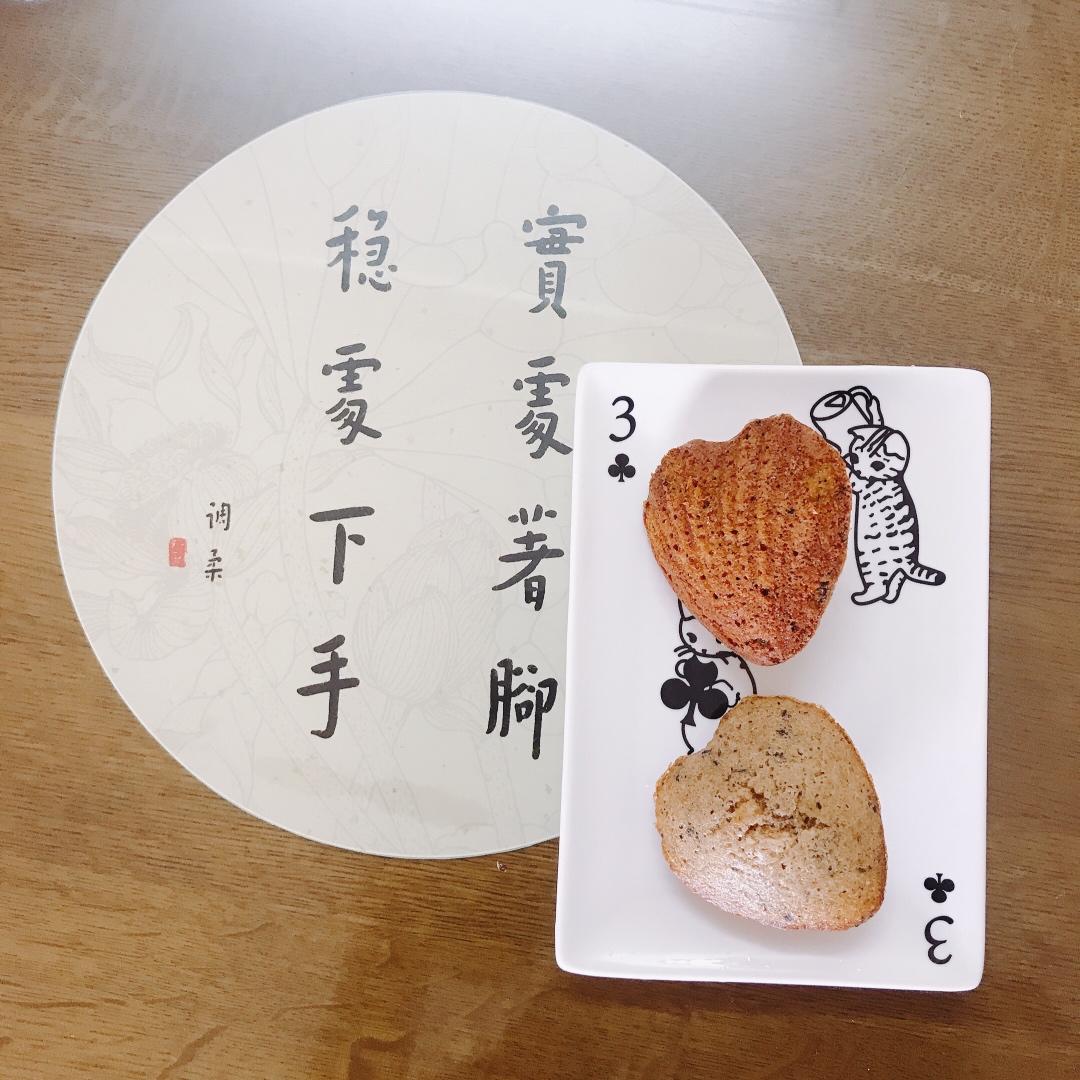 實處著腳
穩處下手
调柔
3
3